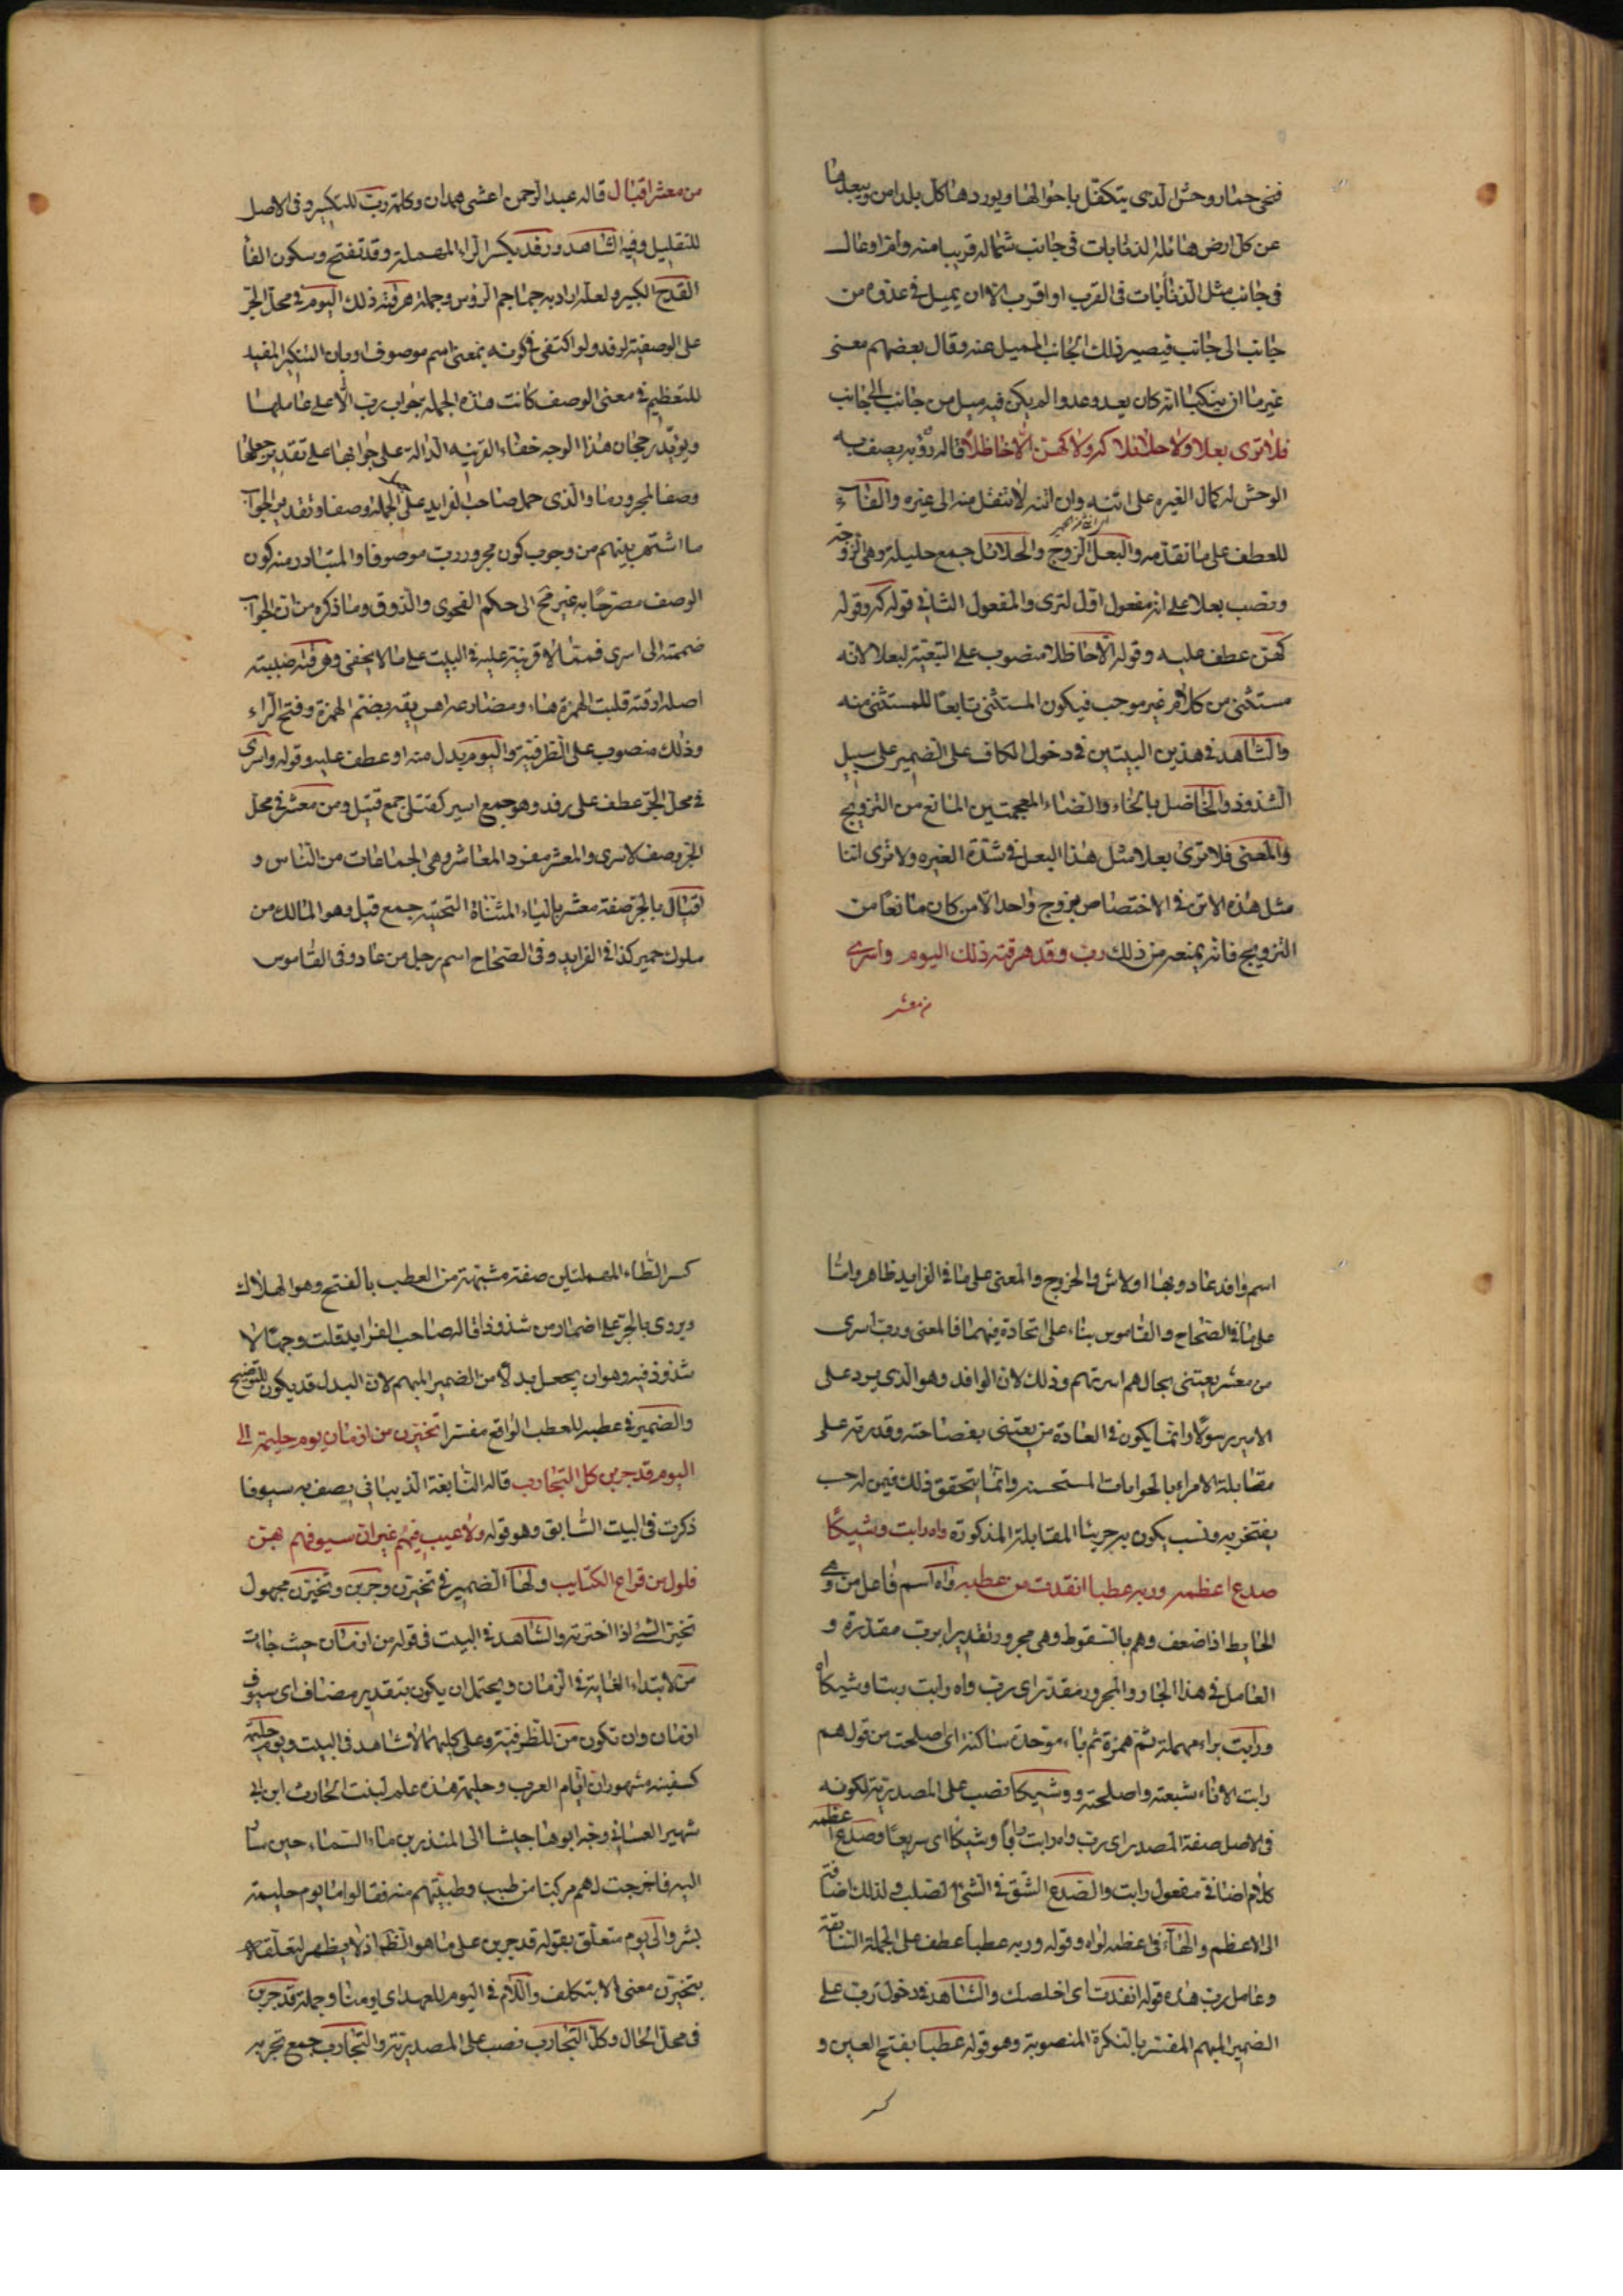 فنحى حمار وحش الذى يتكفل باحوالها ويوردها كل بلد امن ويبعدها
عن كل ارض هائلة الذنابات فى جانب شماله قريبا منه وام اوعال
فى جانب مثل الذنابات فى القرب او اقرب الا ان يميل فى عدوه من
جانب الى جانب فيصير ذلك الجانب المميل عنه وقال بعضهم معنى
غير ما ان ينكبا انه كان يعدو عدوا لم يكن فيه ميل من جانب الى جانب
فلا ترى بعلا ولا حلائلا كه ولا كهن الا حاظلا قاله رؤبه يصف به
الوحش له كمال الغيره على اتنه وان اتنه لا تنتقل منه الى غيره والفاء
للعطف على ما تقدمه والبعل الزوج والحلائل جمع حليلة وهى الزوجة
ونصب بعلا على انه مفعول اول لترى والمفعول الثانى قوله كه وقوله
كهن عطف عليه وقوله الا حاظلا منصوب على التبعية لبعلا لانه
مستثنى من كلام غير موجب فيكون المستثنى تابعا للمستثنى منه
والشاهد فى هذين البيتين فى دخول الكاف على الضمير على سبيل
الشذوذ والحاضل بالخاء والضاء المعجمتين المانع من التزويج
والمعنى فلا ترى بعلا مثل هذا البعل فى شدة الغيره ولا ترى اتنا
مثل هذه الاتن فى الاختصاص بزوج واحد الا من كان مانعا من
التزويج فانه يمنعه من ذلك رب رفد هرقته ذلك اليوم واسرى
من معشر
من معشر اقيال قاله عبد الرحمن اعشى همدان وكلمة رب للتكثير وفى الاصل
للتقليل وفيه الشاهد ورفد بكسر الراء المهملة وقد تفتح وسكون الفا
القدح الكبير ولعله اراد به جماجم الرؤس وجملة هرقته ذلك اليوم فى محل الجر
على الوصفية لرفد ولو اكتفى فى كونه بمعنى اسم موصوف او بان التنكير المفيد
للتعظيم فى معنى الوصف كانت هذه الجملة جواب رب الا على عاملها
ويؤيد رجحان هذا الوجه خفاء القرينه الدالة على جوابها على تقدير جعلها
وصفا لمجرورها والذى حمل صاحب الفرايد على جعل الجملة وصفا وتقدير الجواب
ما اشتهر بينهم من وجوب كون مجرور رب موصوفا والمتبادر منه كون
الوصف مصرحا به غير مح الى حكم الفحوى والذوق وما ذكره من ان الجواب
ضممته الى اسرى فمما لا قرينة عليه فى البيت على ما لا يخفى وهرقته ضببته
اصله ارقته قلبت الهمزة هاء ومضارعه اهريقه بضم الهمزة وفتح الراء
وذلك منصوب على الظرفية واليوم بدل منه او عطف عليه وقوله واسرى
فى محل الجر عطف على رفد وهو جمع اسير كقتلى جمع قتيل ومن معشر فى محل
الجر وصف لاسرى والمعشر مفرد المعاشر وهى الجماعات من الناس و
اقيال بالجر صفة معشر بالياء المثناة التحتية جمع قيل وهو المالك من
ملوك حمير كذا فى الفرايد وفى الصحاح اسم رجل من عاد وفى القاموس
اسم وافد عاد وبها اولاش والخزرج والمعنى على ما فى الفرايد ظاهر واما
على ما فى الصحاح والقاموس بناء على اتحاده فيهما فالمعنى ورب اسرى
من معشر يعتنى بحالهم اسرتهم وذلك لان الوافد وهو الذى يرد على
الامير رسولا وانما يكون فى العادة من يعتنى بفصاحته وقدرته على
مقابلة الامراء بالجوابات المستحسنه وانما يتحقق ذلك فيمن له حسب
يفتخر به ونسب يكون به جريئا المقابلة المذكورة واه رابت وشيكا
صدع اعظمه وربه عطبا انقذت من عطبه واه اسم فاعل من وهى
الحايط اذا ضعف وهم بالسقوط وهى مجرور تقديرا برب مقدرة و
العامل فى هذا الجار والمجرور مقدر اى رب واه رابت ربتا وشيكا
ورابت براء مهملة ثم همزة ثم باء موحدة ساكنة اى اصلحت من قولهم
رابت الاناء شبعته واصلحته ووشيكا نصب على المصدرية لكونه
فى الاصل صفة المصدر اى رب واه رابت رابا وشيكا اى سريعا وصدع اعظمه
كلام اضافى مفعول رابت والصدع الشق فى الشئ الصلب ولذلك اضافته
الى الاعظم والهاء فى اعظمه لواه وقوله وربه عطبا عطف على الجملة السابقة
وعامل رب هذه قوله انقذت اى اخلصك والشاهد فى دخول رب على
الضمير المبهم المفسر بالنكرة المنصوبة وهو قوله عطبا بفتح العين و
كسر
كسر الطاء المهملتين صفة مشبهة من العطب بالفتح وهو الهلاك
ويروى بالجر على اضمار من شذوذا قاله صاحب الفرايد قلت وجها لا
شذوذ فيه وهو ان يجعل بدلا من الضمير المبهم لان البدل قد يكون للتوضيح
والضمير فى عطبه للعطب الواقع مفسرا تخيرن من ازمان يوم حليمة الى
اليوم قد جربن كل التجارب قاله النابغة الذيبانى يصف به سيوفا
ذكرت فى البيت السابق وهو قوله ولا عيب فيهم غير ان سيوفهم بهن
فلول من قراع الكتايب ولها الضمير فى تخيرن وجربن وتخيرن مجهول
تخير الشئ اذا اخترته والشاهد فى البيت فى قوله من ازمان حيث جاءت
من لابتداء الغاية فى الزمان ويحتمل ان يكون بتقدير مضاف اى سيوف
ازمان وان تكون من للظرفية وعلى كليهما لا شاهد فى البيت ويوم حليمة
كسفينه مشهور ان ايام العرب وحليمة هذه علم لبنت الحارث ابن ابى
شهير الغسانى وجه ابوها جيشا الى المنذر بن ماء السماء حين سار
اليه فاخرجت لهم مركبا من طيب وطيبتهم منه فقالوا ما يوم حليمة
بسر والى يوم متعلق بقوله قد جربن على ما هو الظ اذ لا يظهر لتعلقه
بتخيرن معنى الا بتكلف واللام فى اليوم للعهد اى يومنا وجملة قد جربن
فى محل الحال وكل التجارب نصب على المصدرية والتجارب جمع تجربه